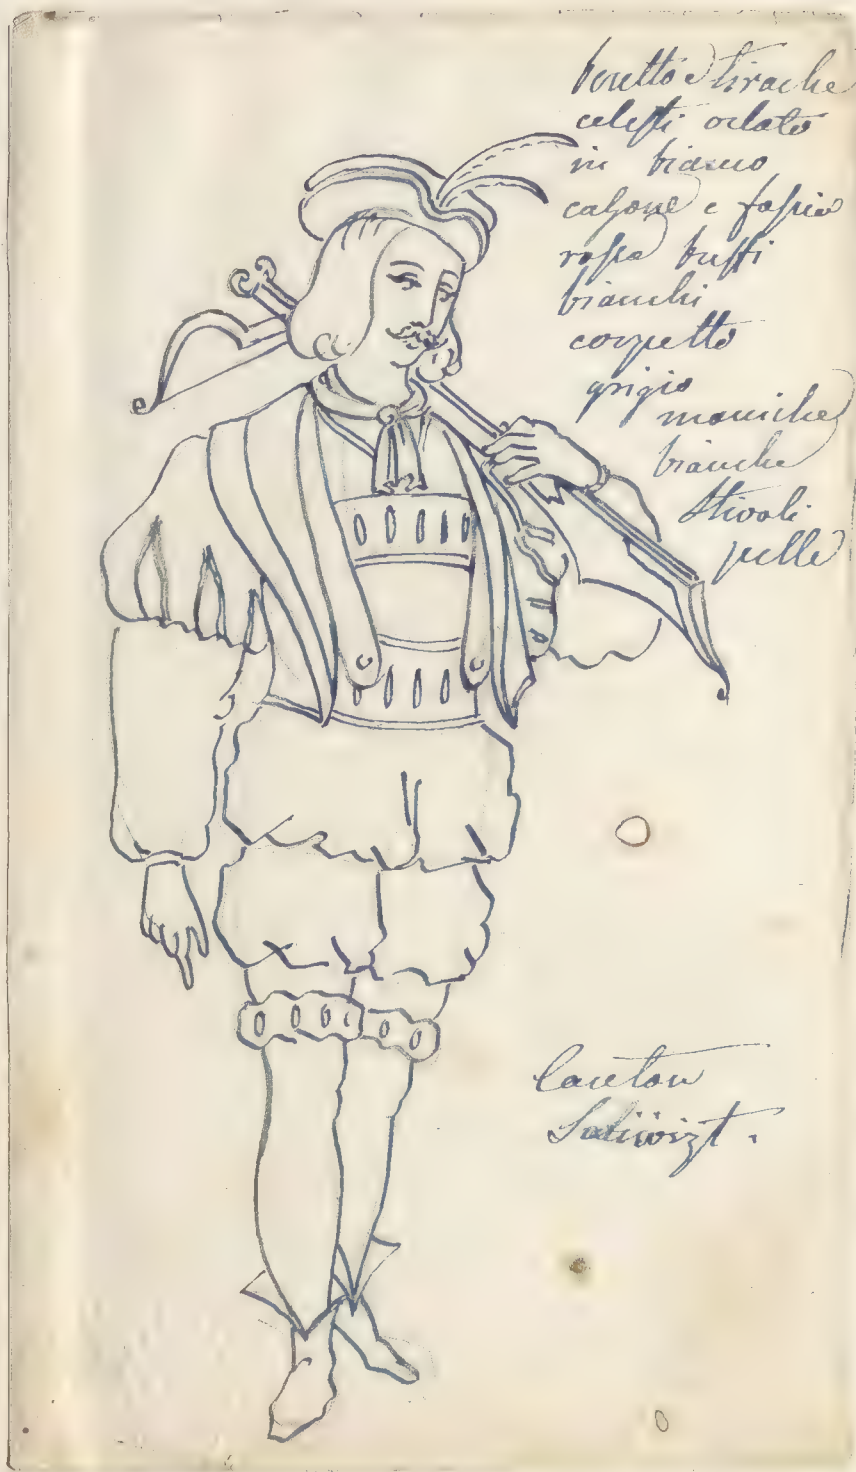 beretto e tirache
celesti orlato
in bianco
calzone e fascia
rossa buffi
bianchi
corpetto
grigio
maniche
bianche
Stivali
pelle
Canton